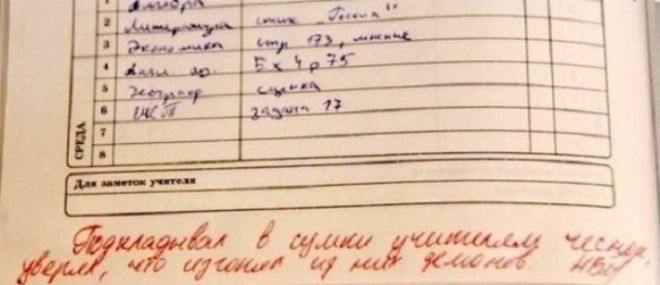 1 Алгебра
2 Литература стих „Гоския"
3 Экономика стр 173, мнение
4 Англ. яз. Ex 4 p 75
5 Географ сценка
6 задача 17
7
8
СРЕДА
Для заметок учителя
Подкладывал в сумки учителям чеснок,
уверял, что изгонял из них демонов.